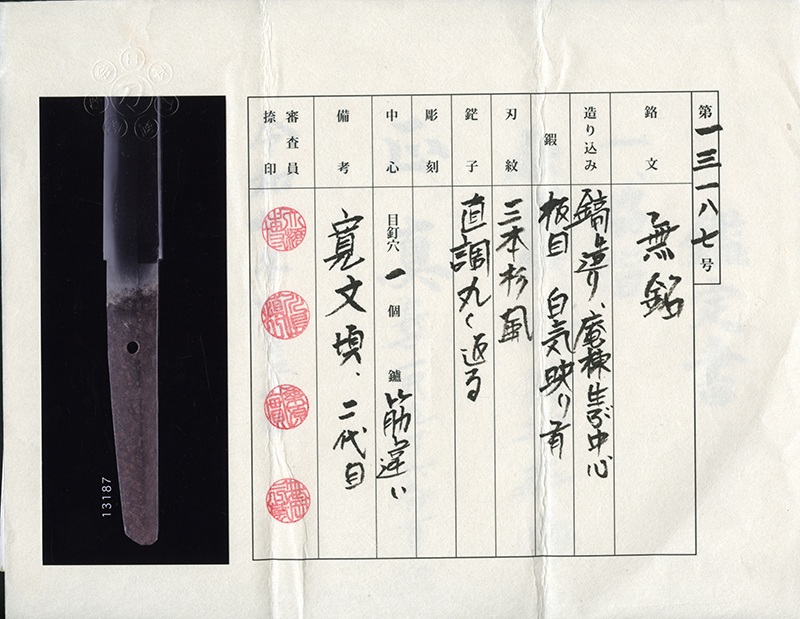 第一三一八七号
銘文 無銘
造り込み 鎬造り、庵棟生ぶ中心
鍛 板目 白気映り有
刃紋 三本杉風
鋩子 直調丸く返る
彫刻
中心 目釘穴 一個 鑢 筋違い
備考 寛文頃、二代目
審査員
捺印
13187